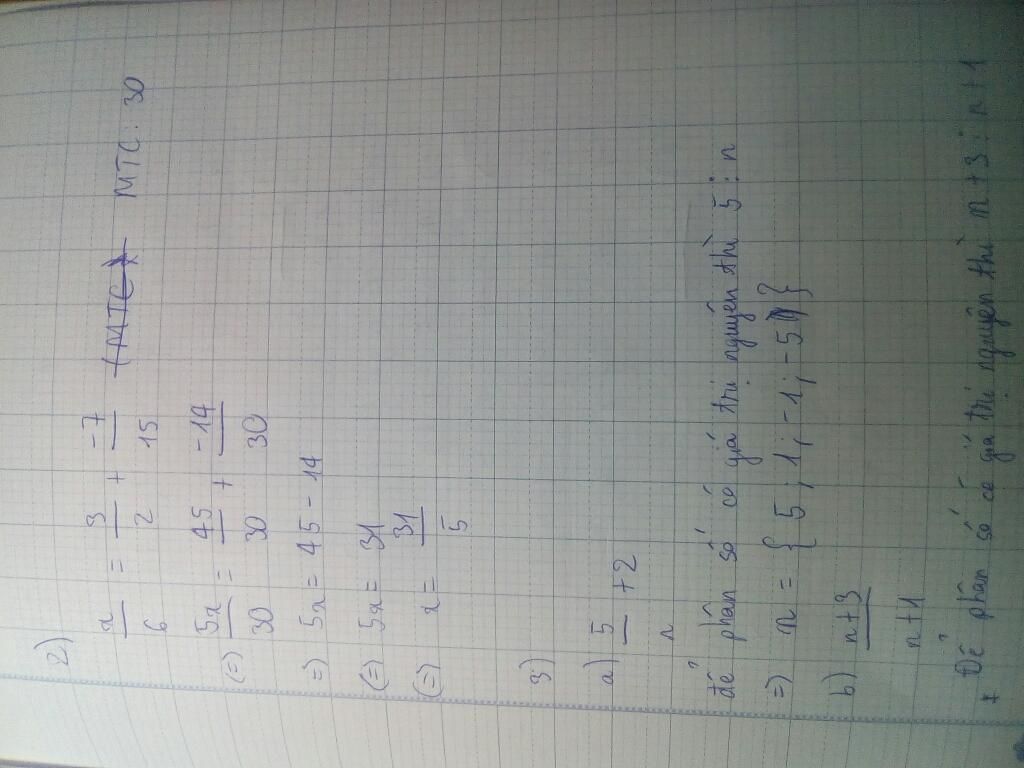 2)
x/6 = 3/2 + -7/15 (MTC) MTC: 30
(=) 5x/30 = 45/30 + -14/30
=) 5x = 45 - 14
(=) 5x = 31
(=) x = 31/5
3)
a) 5/n + 2
để phân số có giá trị nguyên thì 5 ⋮ n
=) n = { 5 ; 1 ; -1 ; -5 }
b) n+3/n+1
+ Để phân số có giá trị nguyên thì n + 3 ⋮ n + 1